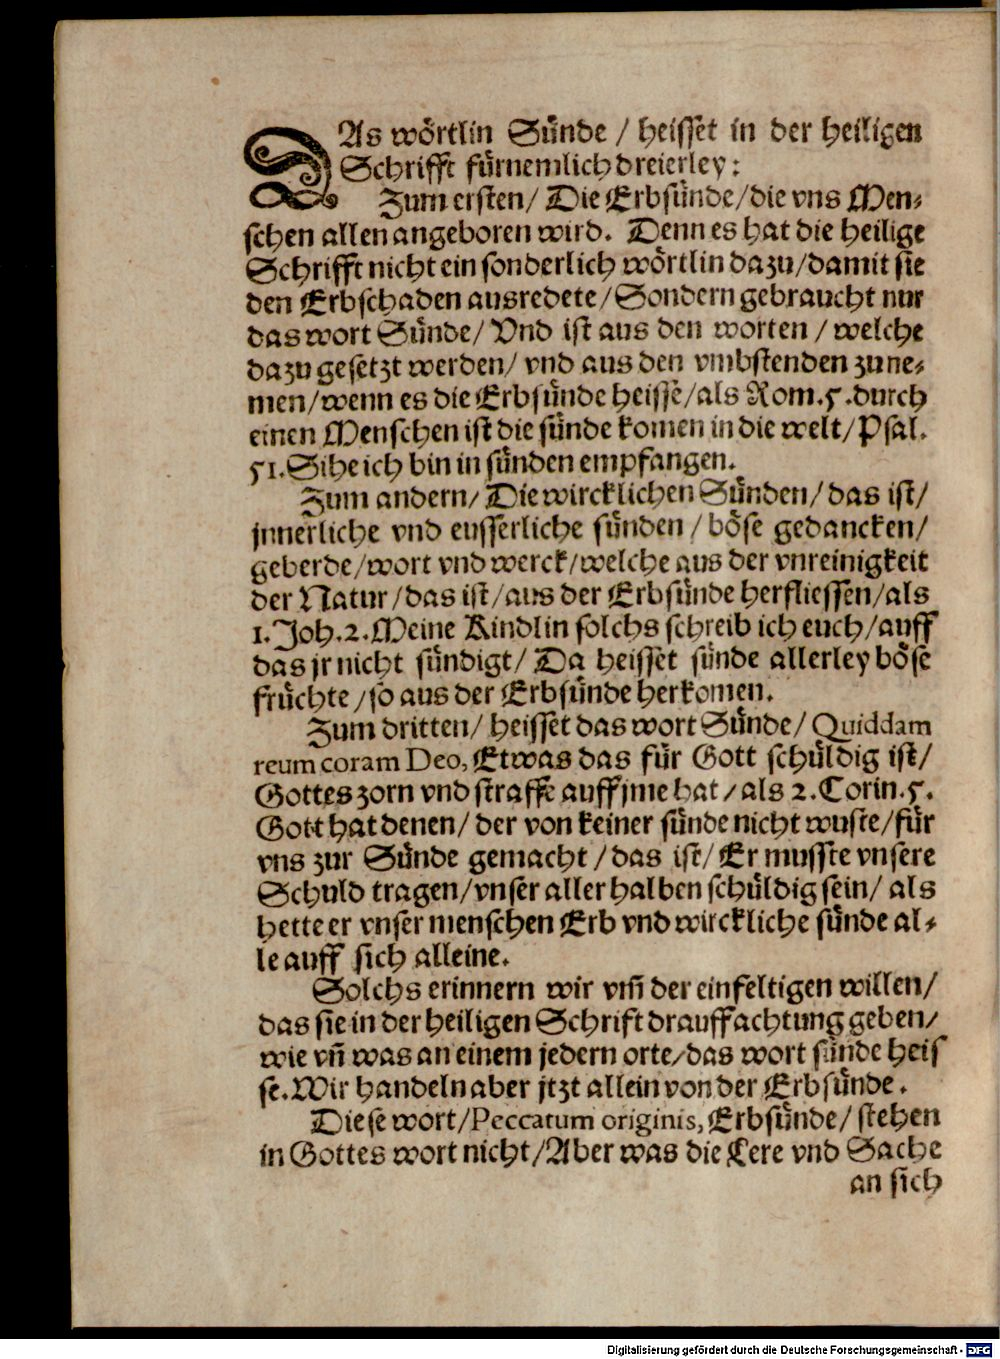 DAs wörtlin Sünde / heisset in der heiligen
Schrifft fürnemlich dreierley:
Zum ersten / Die Erbsünde / die vns Men-
schen allen angeboren wird. Denn es hat die heilige
Schrifft nicht ein sonderlich wörtlin dazu / damit sie
den Erbschaden ausredete / Sondern gebraucht nur
das wort Sünde / Vnd ist aus den worten / welche
dazu gesetzt werden / vnd aus den vmbstenden zu ne-
men / wenn es die Erbsünde heisse / als Rom. 5. durch
einen Menschen ist die sünde komen in die welt / Psal.
51. Sihe ich bin in sünden empfangen.
Zum andern / Die wircklichen Sünden / das ist /
jnnerliche vnd eusserliche sünden / böse gedancken /
geberde / wort vnd werck / welche aus der vnreinigkeit
der Natur / das ist / aus der Erbsünde herfliessen / als
1. Joh. 2. Meine Kindlin solchs schreib ich euch / auff
das jr nicht sündigt / Da heisset sünde allerley böse
früchte / so aus der Erbsünde herkomen.
Zum dritten / heisset das wort Sünde / Quiddam
reum coram Deo, Etwas das für Gott schüldig ist /
Gottes zorn vnd straffe auff jme hat / als 2. Corin. 5.
Gott hat denen / der von keiner sünde nicht wuste / für
vns zur Sünde gemacht / das ist / Er musste vnsere
Schuld tragen / vnser aller halben schüldig sein / als
hette er vnser menschen Erb vnd wirckliche sünde al-
le auff sich alleine.
Solchs erinnern wir vm̃ der einfeltigen willen /
das sie in der heiligen Schrift drauff achtung geben /
wie vñ was an einem jedern orte / das wort sünde heis
se. Wir handeln aber jtzt allein von der Erbsünde.
Diese wort / Peccatum originis, Erbsünde / stehen
in Gottes wort nicht / Aber was die Lere vnd Sache
an sich
Digitalisierung gefördert durch die Deutsche Forschungsgemeinschaft - DFG